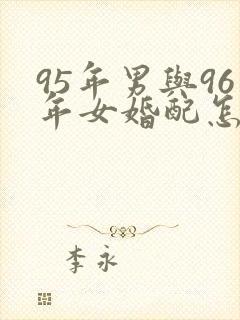 95年男與96
年女婚配怎
李永